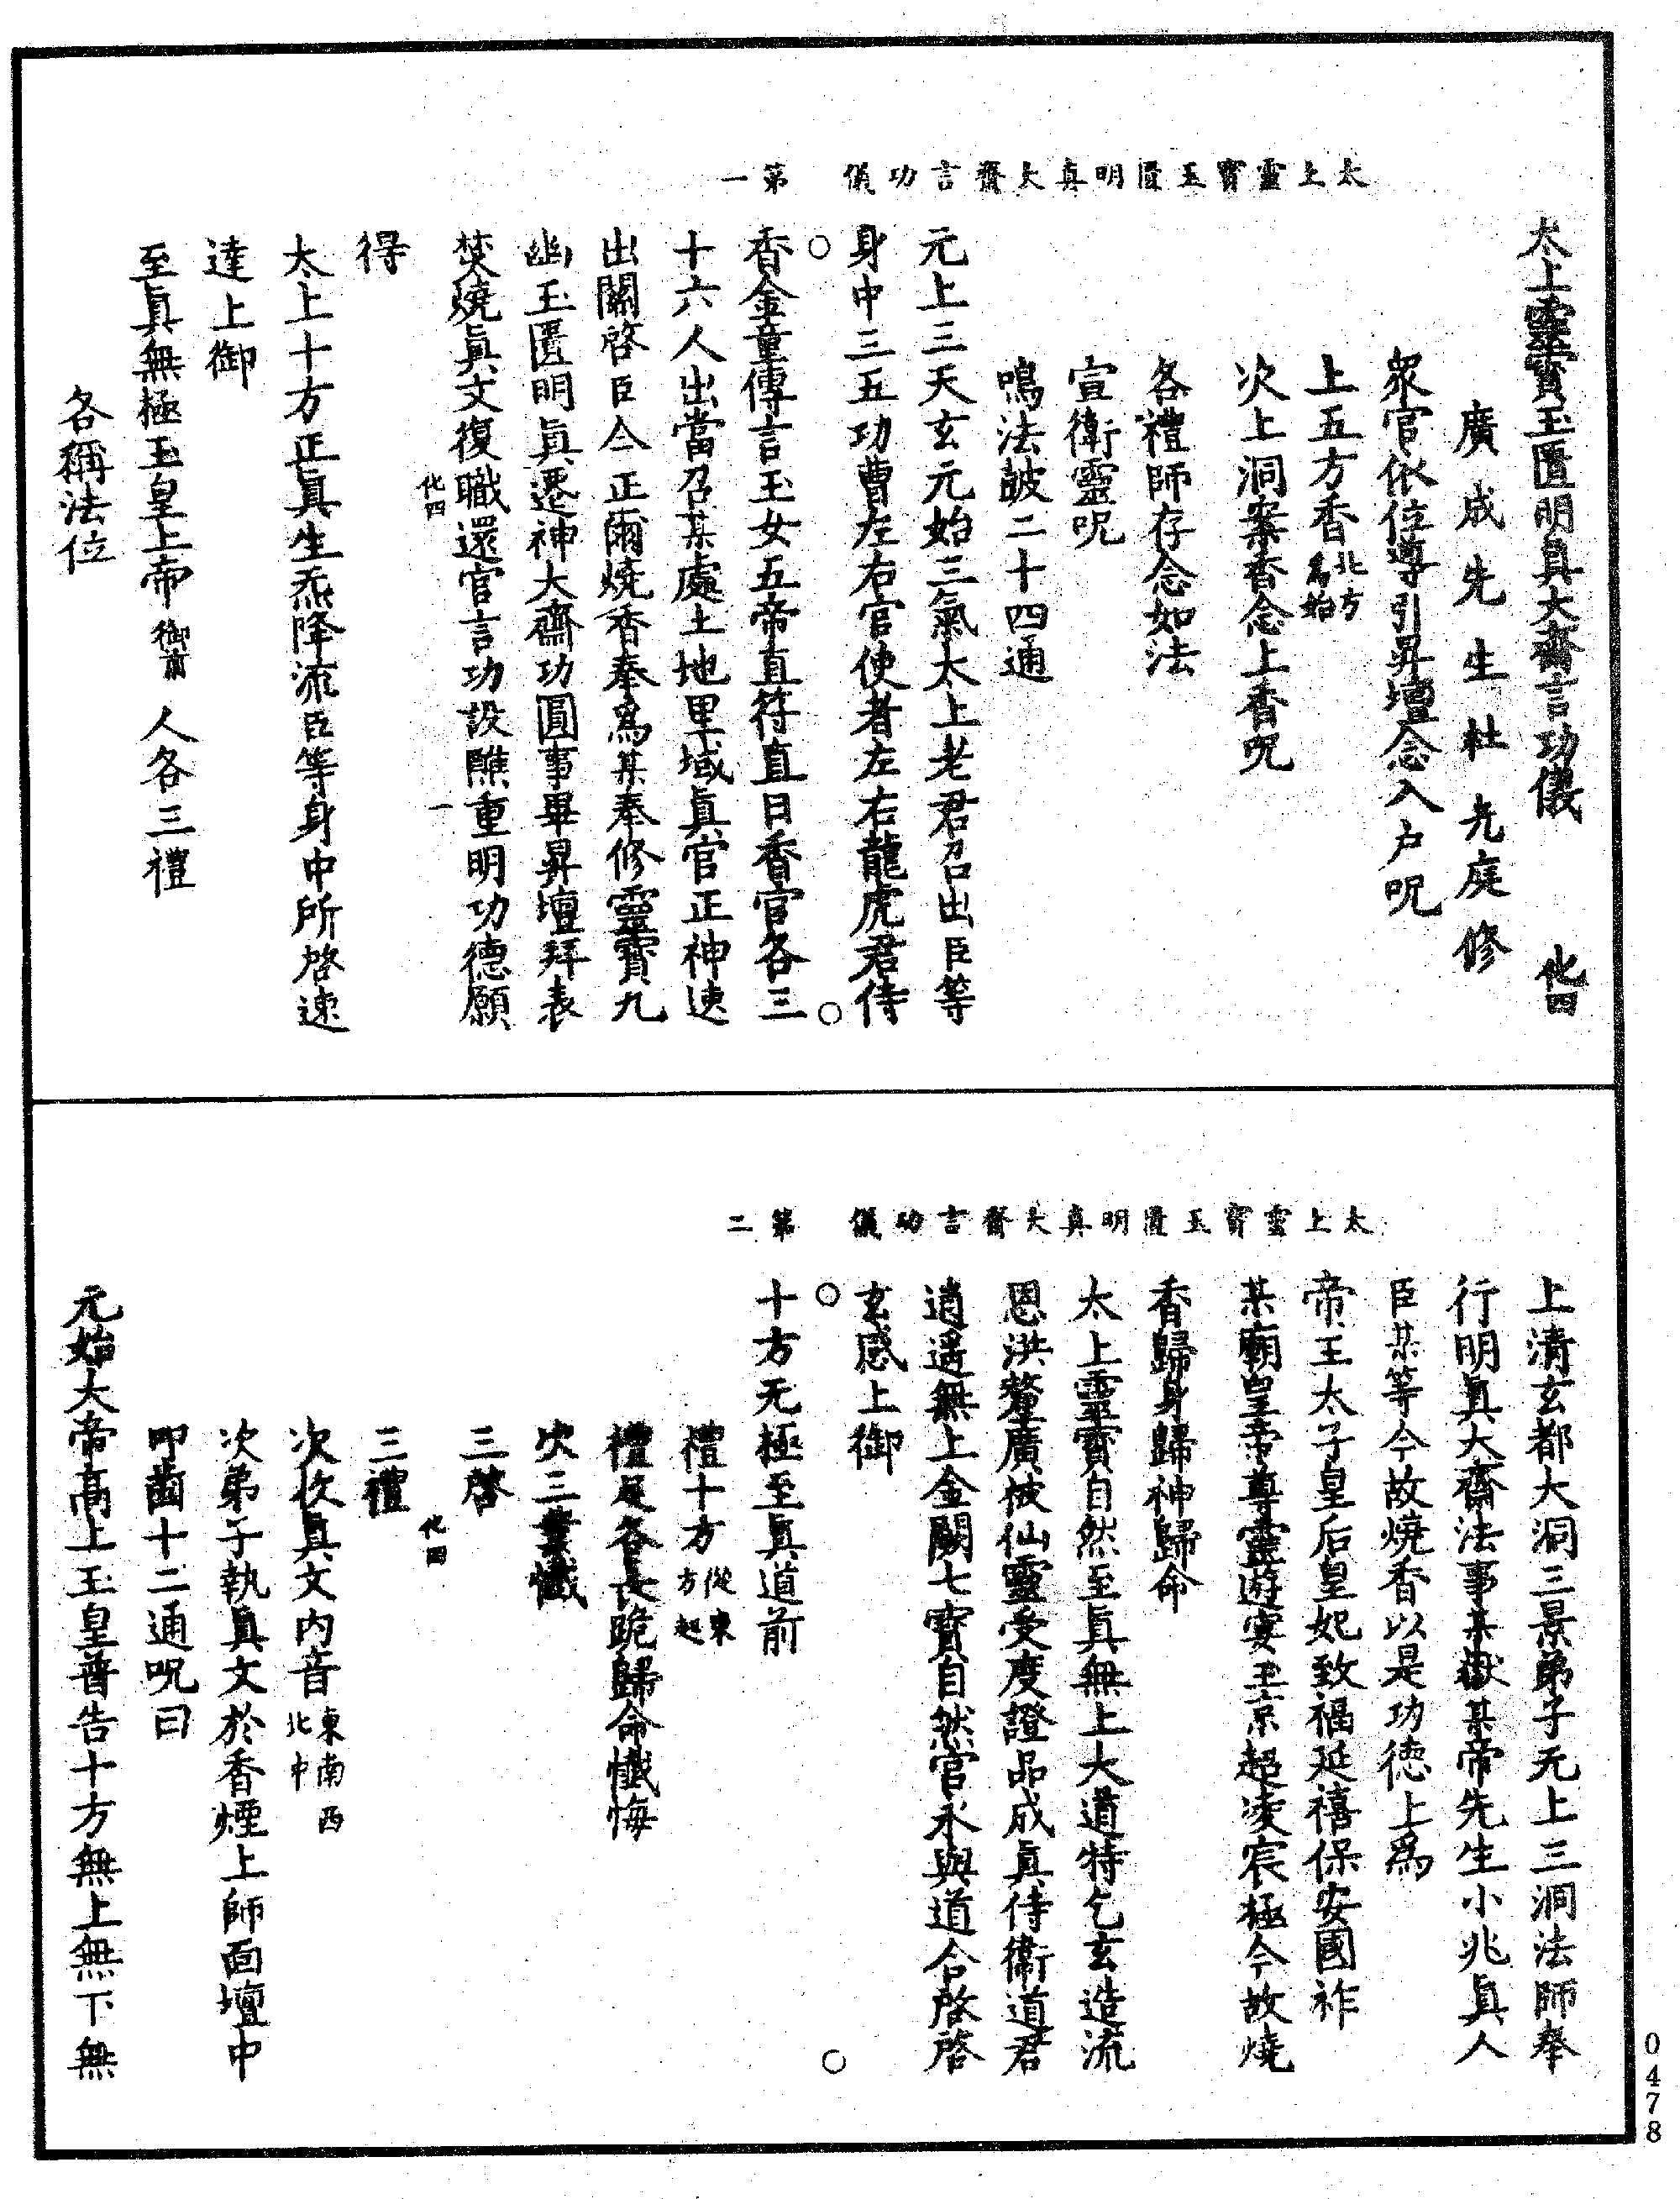 太上靈寶玉匱明真大齋言功儀　第一
太上靈寶玉匱明真大齋言功儀　化四
廣成先生杜光庭修
眾官依位導引昇壇念入户呪
上五方香北方為始
次上洞案香念上香呪
各禮師存念如法
宣衛靈呪
鳴法鼓二十四通
元上三天玄元始三氣太上老君召出臣等
身中三五功曹左右官使者左右龍虎君侍
香金童傳言玉女五帝直符直日香官各三
十六人出當召某處土地里域真官正神速
出關啓臣今正爾燒香奉為某奉修靈寶九
幽玉匱明真遷神大齋功圓事畢昇壇拜表
焚燒真文復職還官言功設醮重明功德願
化四　一
得
太上十方正真生炁降流臣等身中所啓速
達上御
至真無極玉皇上帝御前　人各三禮
各稱法位
太上靈寶玉匱明真大齋言功儀　第二
上清玄都大洞三景弟子无上三洞法師奉
行明真大齋法事某嶽某帝先生小兆真人
臣某等今故燒香以是功德上為
帝王太子皇后皇妃致福延禧保安國祚
某廟皇帝尊靈遊宴玉京超凌宸極今故燒
香歸身歸神歸命
太上靈寶自然至真無上大道特乞玄造流
恩洪釐廣被仙靈受度證品成真侍衛道君
逍遥無上金闕七寶自然宮永與道合啓啓
玄感上御
十方无極至真道前
禮十方從東方起
禮足各長跪歸命懺悔
次三業懺
三啓
化四
三禮
次收真文内音東南西北中
次弟子執真文於香煙上師面壇中
叩齒十二通呪曰
元始大帝高上玉皇普告十方無上無下無
0478